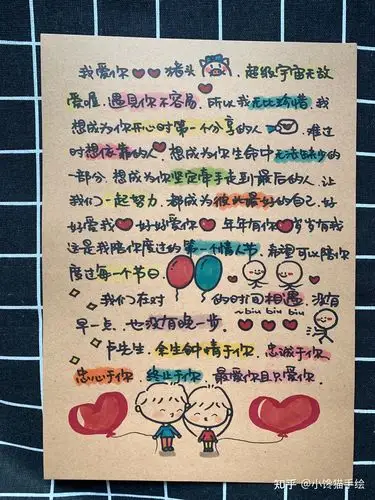 我爱你 猪头 . 超级宇宙无敌
爱喔. 遇見你不容易. 所以我无比珍惜. 我
想成为你开心时第一个分享的人 . 难过
时想依靠的人. 想成为你生命中无法缺少的
一部分. 想成为你坚定牵手走到最后的人. 让
我们一起努力. 都成为彼此最好的自己. 好
好爱我 好好爱你 年年有你 岁岁有我
这是我陪你度过的第一个情人节. 希望可以陪你
度过每一个节日.
我们在对 的时间相遇. 没有
~biu biu biu
早一点. 也没有晚一步.
卢先生. 余生钟情于你. 忠诚于你
忠心于你. 终止于你. 最爱你且只爱你.
知乎 @小馋猫手绘